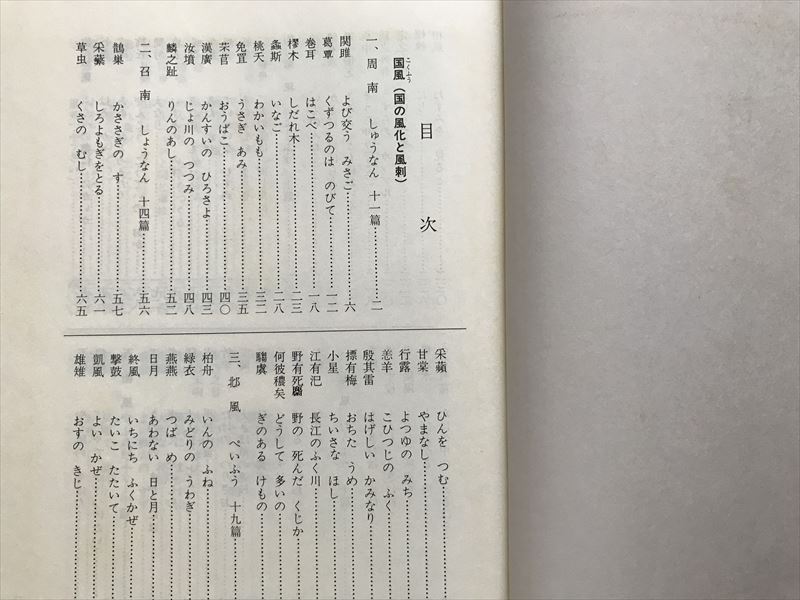 目次
国風（国の風化と風刺）
こくふう
一、周南 しゅうなん 十一篇……二
関雎 よび交う みさご……六
葛覃 くずつるのは のびて……一二
巻耳 はこべ……一八
樛木 しだれ木……二三
螽斯 いなご……二八
桃夭 わかいもも……三二
免罝 うさぎ あみ……三五
芣苢 おうばこ……四〇
漢廣 かんすいの ひろさよ……四三
汝墳 じょ川の つつみ……四八
麟之趾 りんのあし……五二
二、召南 しょうなん 十四篇……五六
鵲巣 かささぎの す……五七
采蘩 しろよもぎをとる……六一
草虫 くさの むし……六五
采蘋 ひんを つむ……
甘棠 やまなし……
行露 よつゆの みち……
羔羊 こひつじの ふく……
殷其雷 はげしい かみなり……
摽有梅 おちた うめ……
小星 ちいさな ほし……
江有汜 長江のふく川……
野有死麕 野の 死んだ くじか
何彼穠矣 どうして 多いの……
騶虞 ぎのある けもの……
三、邶風 べいふう 十九篇……
柏舟 いんの ふね……
緑衣 みどりの うわぎ……
燕燕 つば め……
日月 あわない 日と月……
終風 いちにち ふくかぜ……
撃鼓 たいこ たたいて……
凱風 よい かぜ……
雄雉 おすの きじ……